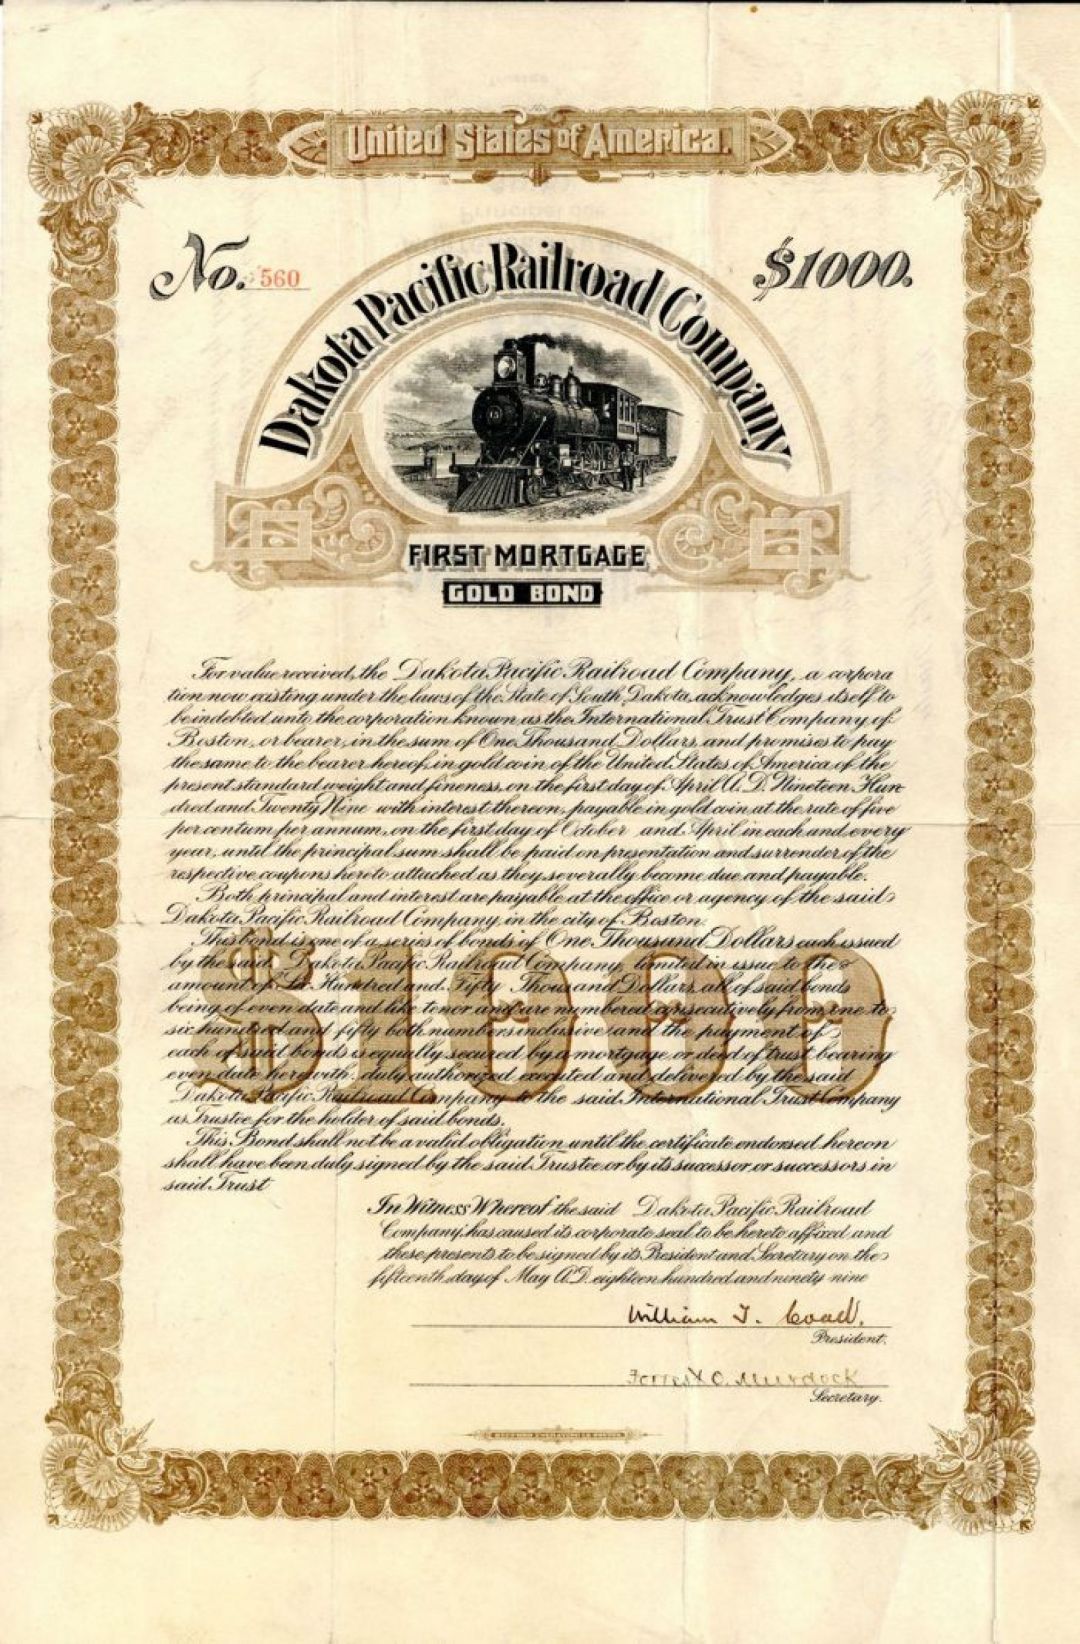 United States of America.
No. 560
$1000.
Dakota Pacific Railroad Company
FIRST MORTGAGE
GOLD BOND
For value received, the Dakota Pacific Railroad Company, a corpora
tion now existing under the laws of the State of South Dakota, acknowledges itself to
be indebted unto the corporation known as the International Trust Company of
Boston, or bearer, in the sum of One Thousand Dollars, and promises to pay
the same to the bearer hereof, in gold coin of the United States of America of the
present standard weight and fineness, on the first day of April A.D. Nineteen Hun
dred and Twenty Nine with interest thereon, payable in gold coin at the rate of five
per centum per annum, on the first day of October and April in each and every
year, until the principal sum shall be paid on presentation and surrender of the
respective coupons hereto attached as they severally become due and payable.
Both principal and interest are payable at the office or agency of the said
Dakota Pacific Railroad Company in the city of Boston.
This bond is one of a series of bonds of One Thousand Dollars each issued
by the said Dakota Pacific Railroad Company, limited in issue to the
amount of Six Hundred and Fifty Thousand Dollars, all of said bonds
being of even date and like tenor and are numbered consecutively from one to
six hundred and fifty both numbers inclusive and the payment of
each of said bonds is equally secured by a mortgage or deed of trust bearing
even date herewith, duly authorized executed and delivered by the said
Dakota Pacific Railroad Company to the said International Trust Company
as Trustee for the holder of said bonds.
This Bond shall not be a valid obligation until the certificate endorsed hereon
shall have been duly signed by the said Trustee or by its successor or successors in
said Trust
$1000
In Witness Whereof the said Dakota Pacific Railroad
Company, has caused its corporate seal to be hereto affixed and
these presents to be signed by its President and Secretary on the
fifteenth day of May A.D. eighteen hundred and ninety nine
William T. Coad.
President.
Forrest O. Murdock
Secretary.